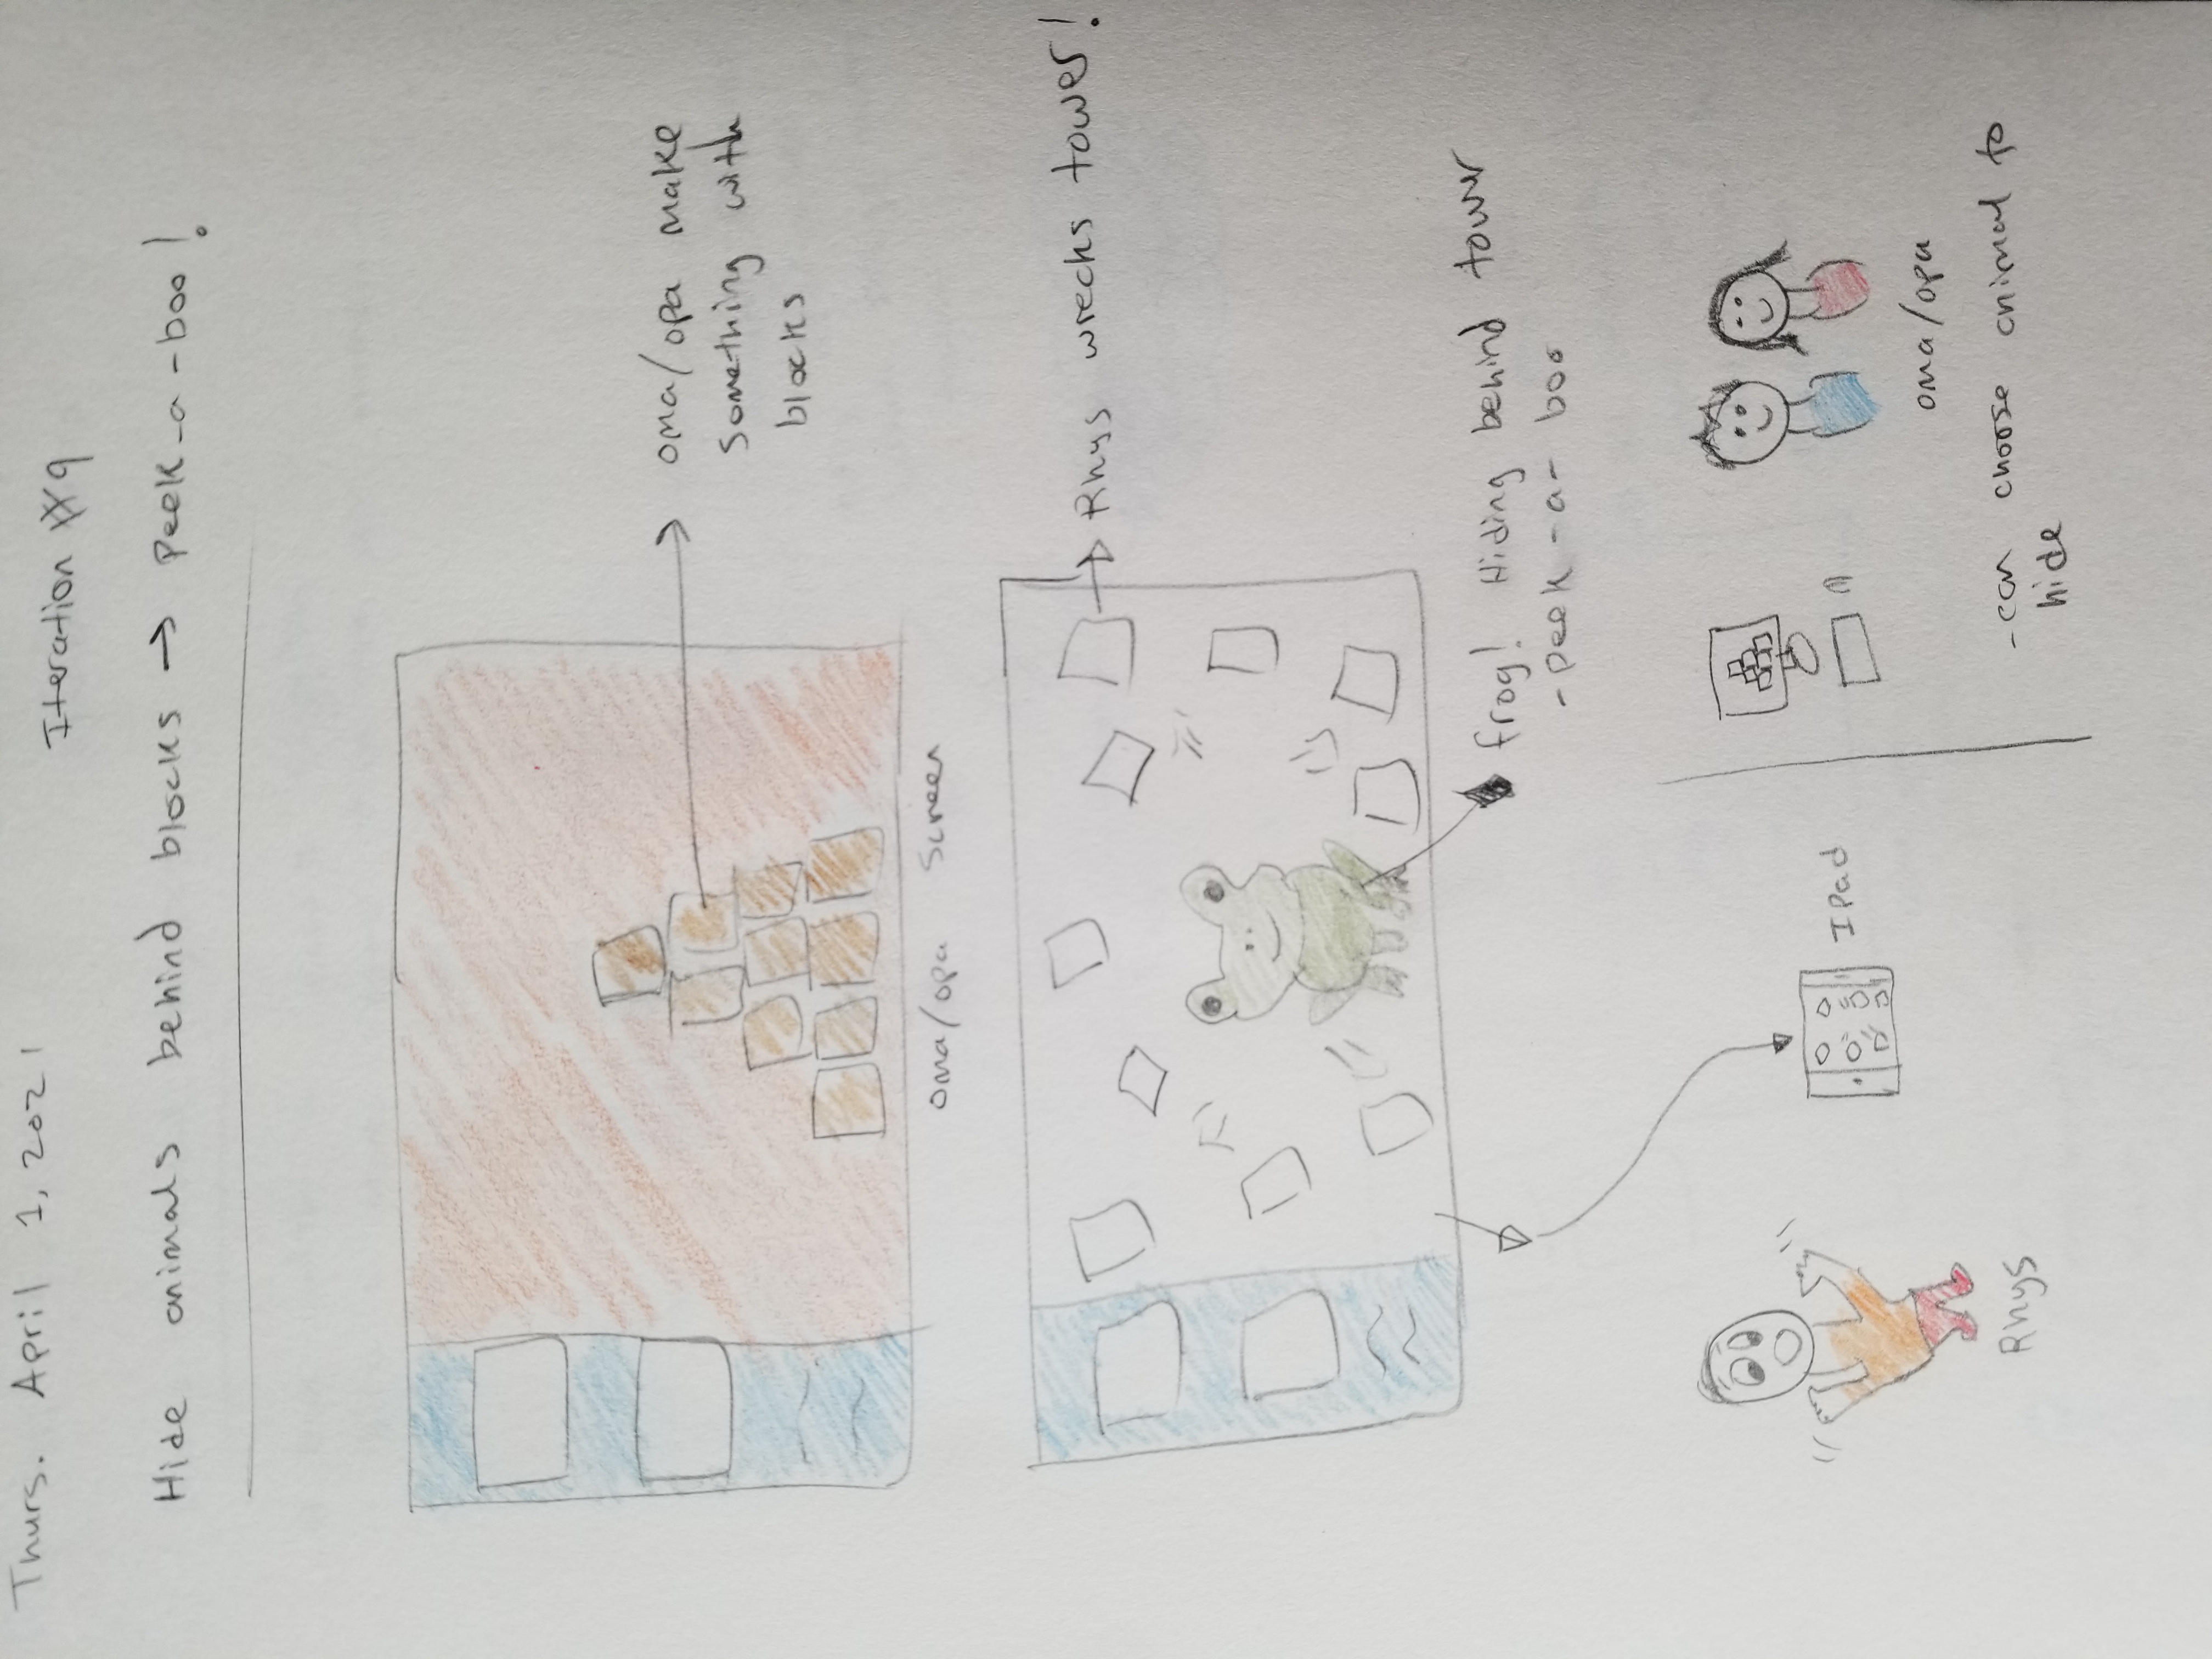 Thurs. April 1, 2021
Iteration #9
Hide animals behind blocks → Peek-a-boo!
oma/opa make
something with
blocks
oma/opa screen
Rhys wrecks tower!
frog! Hiding behind tower
- peek-a-boo
IPad
oma/opa
Rhys
- can choose animal to
hide